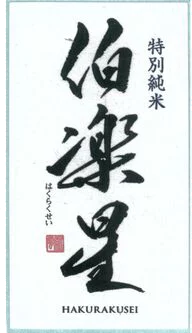 特別純米
伯楽星
はくらくせい
HAKURAKUSEI